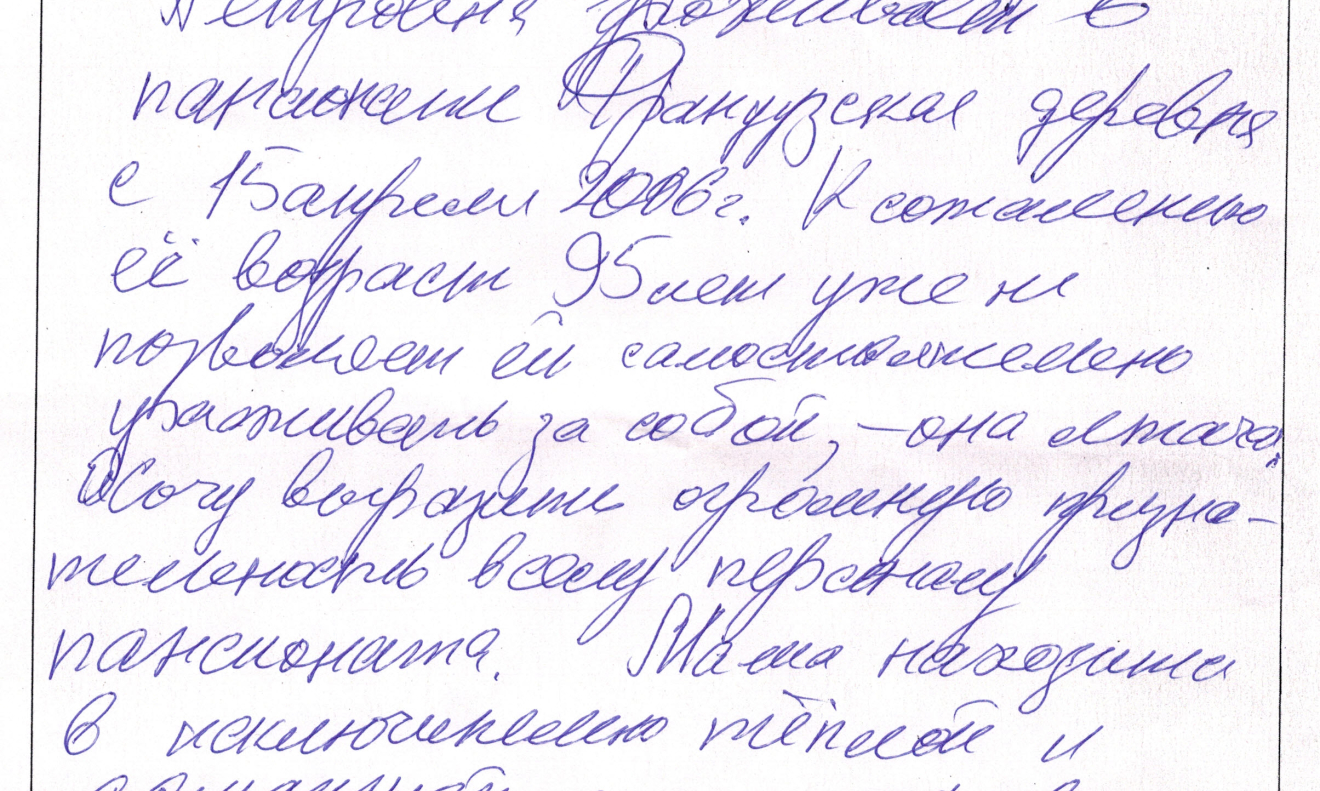 Петровна проживает в
пансионате Французская деревня
с 15 апреля 2006г. К сожалению
её возраст 95 лет уже не
позволяет ей самостоятельно
ухаживать за собой, – она лежачая.
Хочу выразить огромную призна-
тельность всему персоналу
пансионата. Мама находится
в исключительно тёплой и